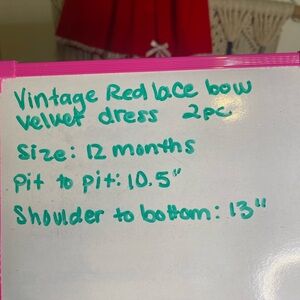 Vintage Red lace bow
velvet dress 2pc
Size: 12 months
Pit to pit: 10.5"
Shoulder to bottom: 13"